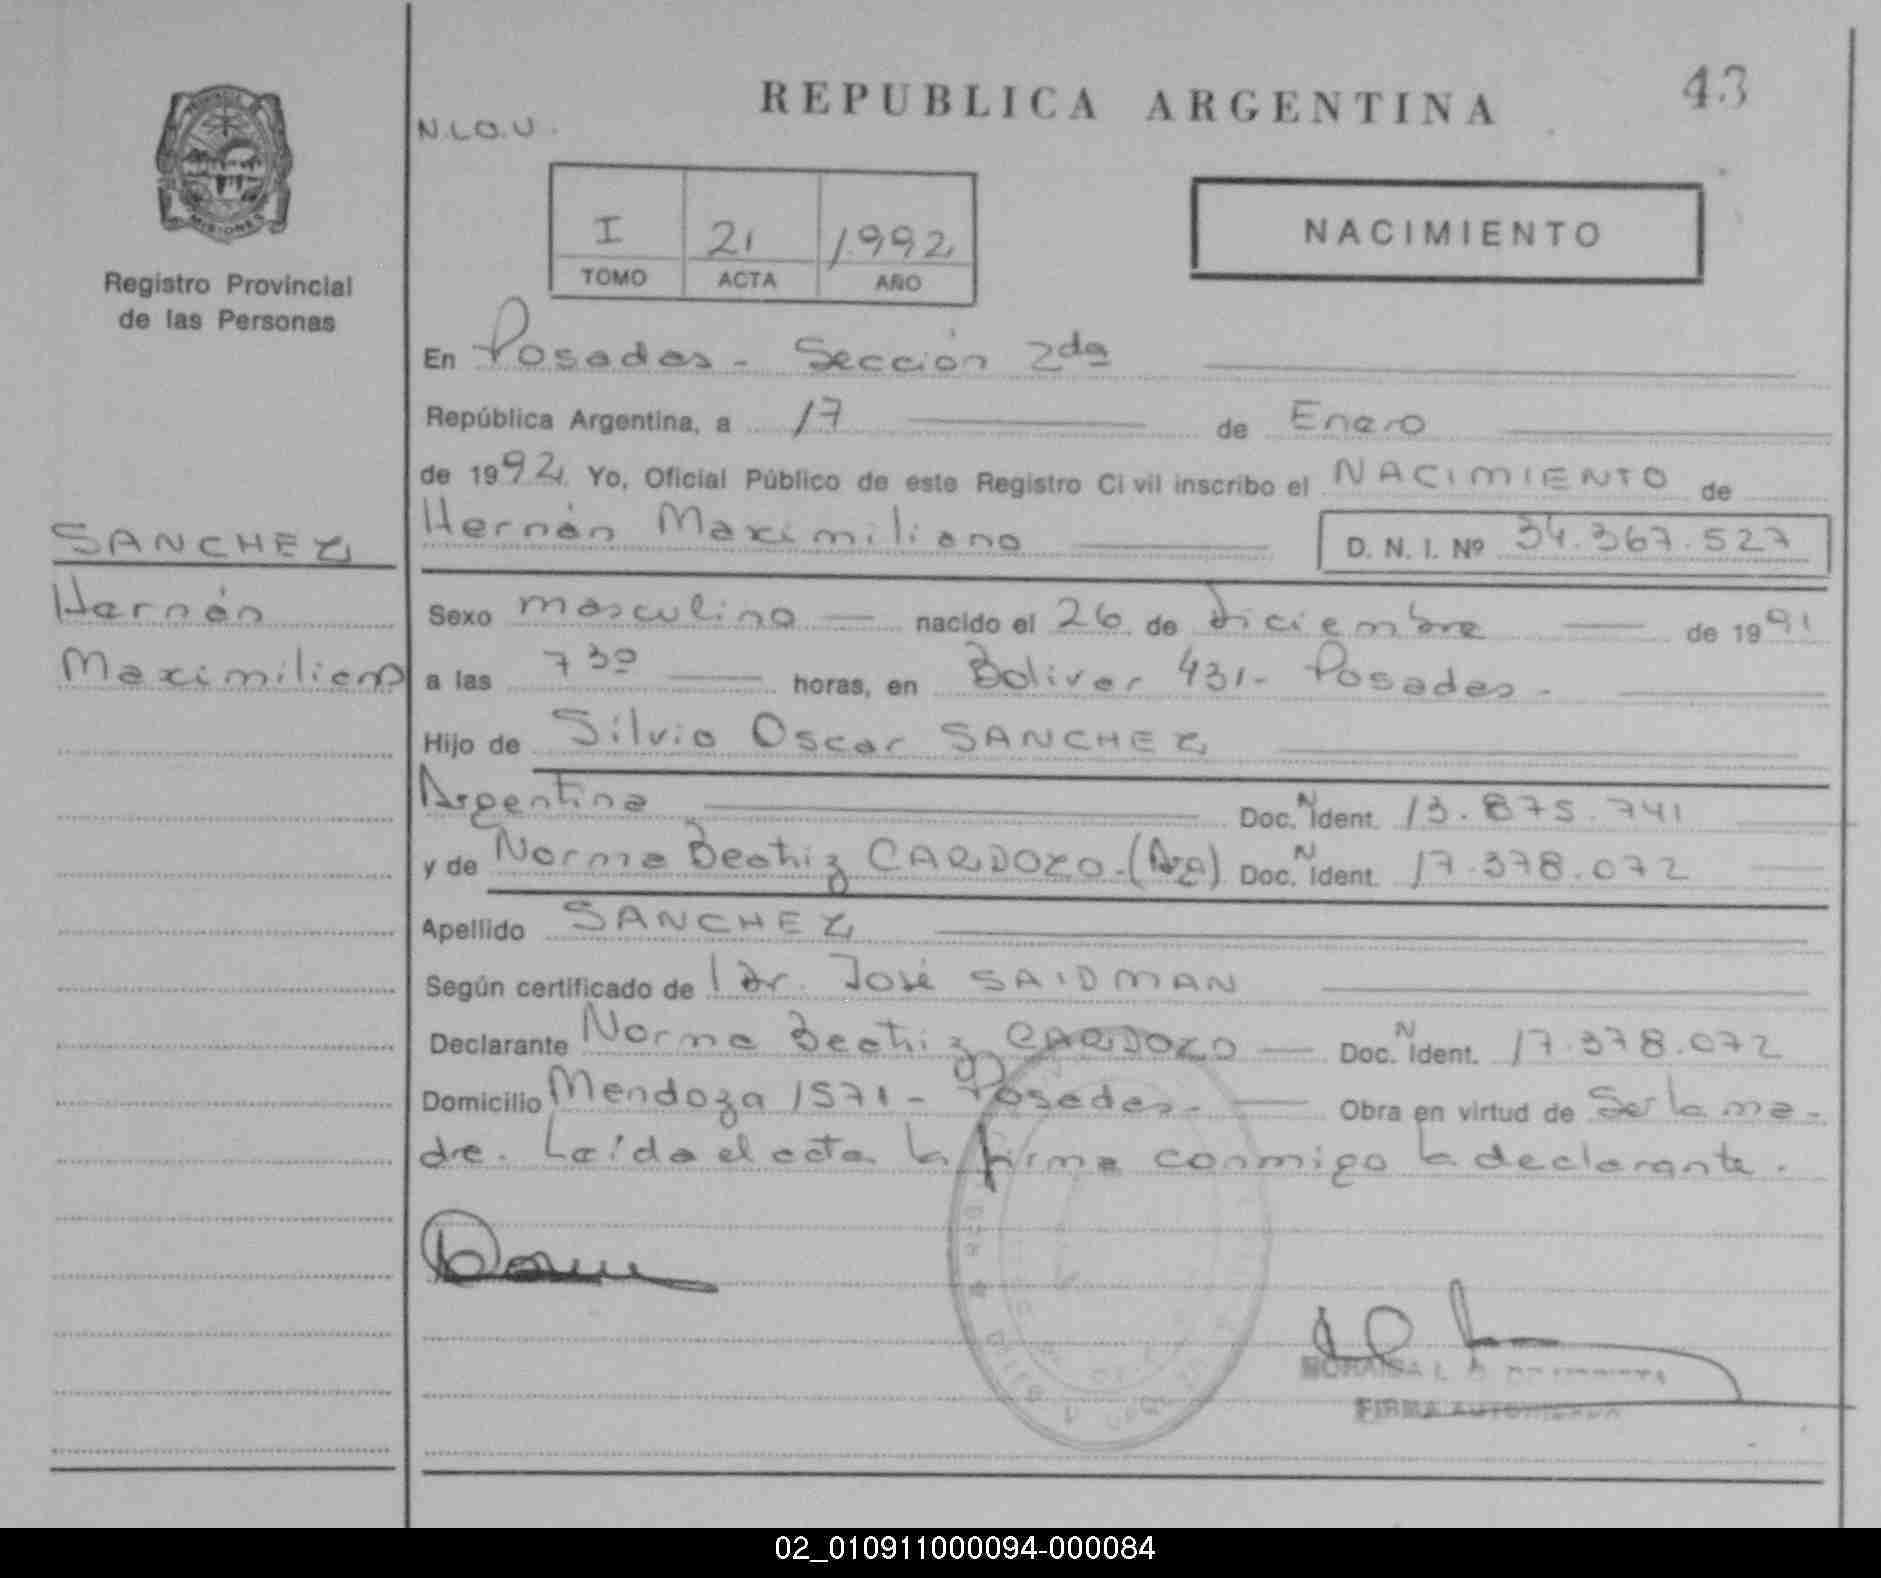 REPUBLICA ARGENTINA
43
N.L.O.U.
MISIONES
Registro Provincial
de las Personas
I 21 1992
TOMO ACTA AÑO
NACIMIENTO
En Posadas - Sección 2da
República Argentina, a 17 de Enero
de 1992 Yo, Oficial Público de este Registro Civil inscribo el NACIMIENTO de
Hernán Maximiliano D. N. I. Nº 34.367.527
SANCHEZ
Hernán
Maximiliano
Sexo masculino nacido el 26 de Diciembre de 1991
a las 7 30 horas, en Bolivar 431- Posadas -
Hijo de Silvio Oscar SANCHEZ
Argentina Doc. N Ident. 13.875.741
y de Norma Beatriz CARDOZO - (Arg) Doc. N Ident. 17.378.072
Apellido SANCHEZ
Según certificado de l Dr. José SAIDMAN
Declarante Norma Beatriz CARDOZO Doc. N Ident. 17.378.072
Domicilio Mendoza 1571 - Posadas - Obra en virtud de Ser la ma-
dre. Leída el acta la firma conmigo la declarante.
FIRMA AUTORIZADA
02_010911000094-000084